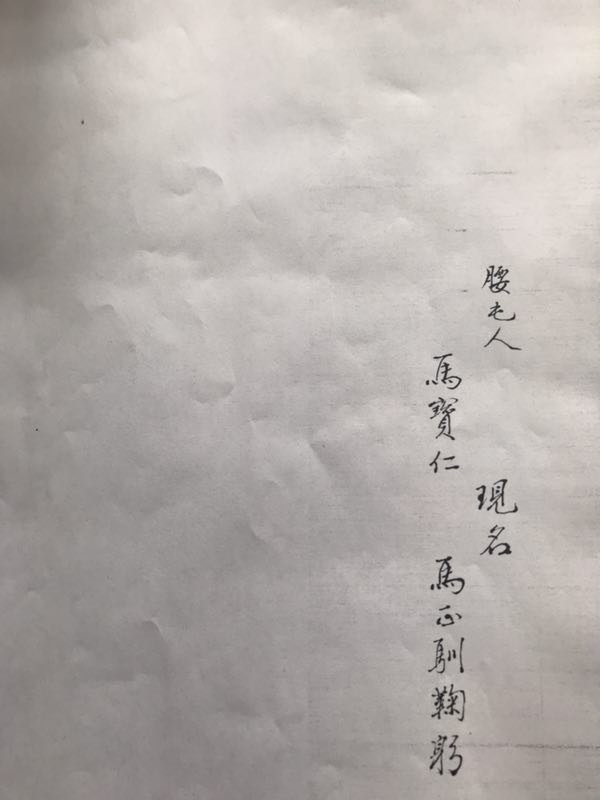 腰屯人
現名
馬寶仁
馬正馴鞠躬